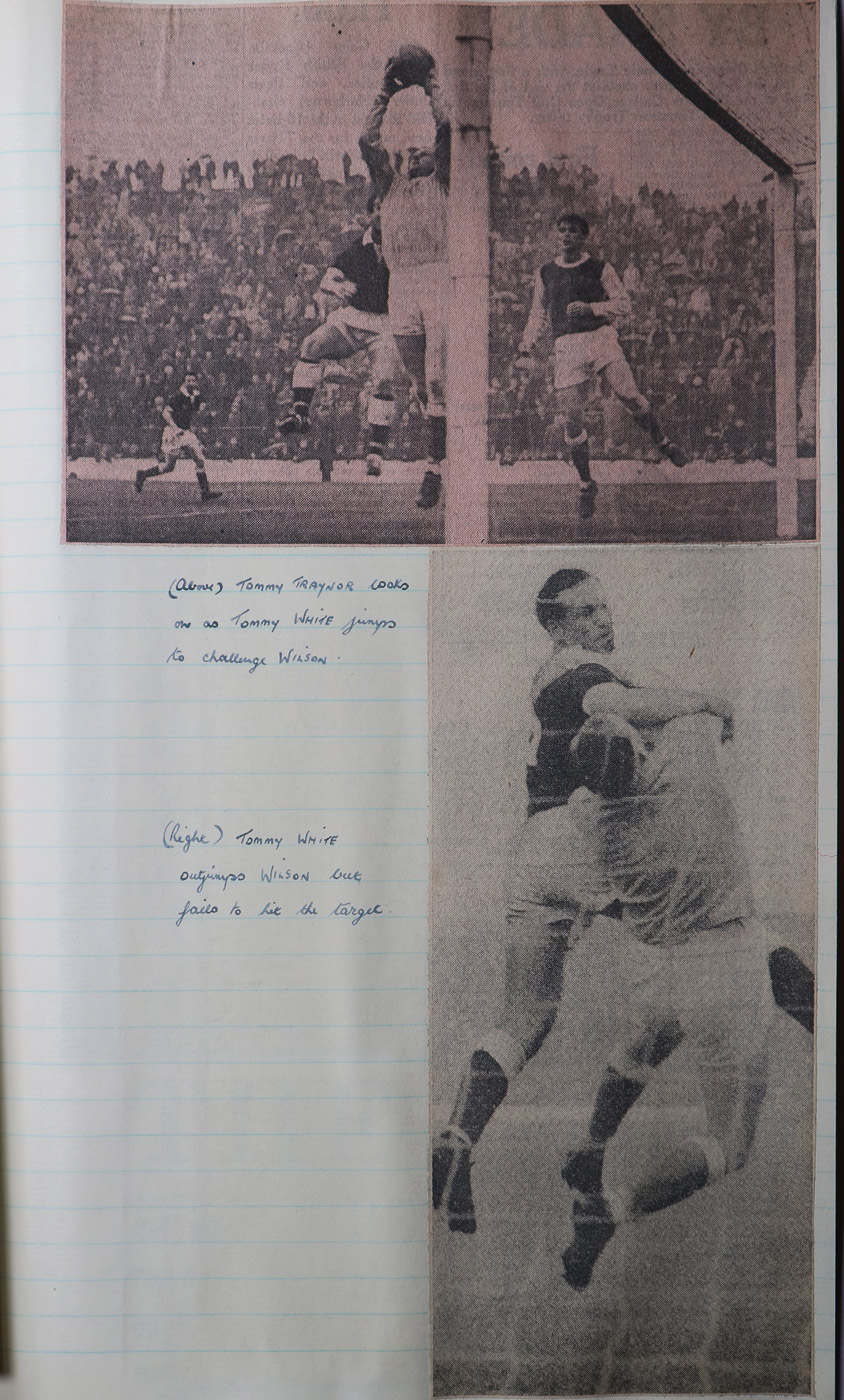 (Above) TOMMY TRAYNOR looks
on as TOMMY WHITE jumps
to challenge WILSON.
(Right) TOMMY WHITE
outjumps WILSON but
fails to hit the target.